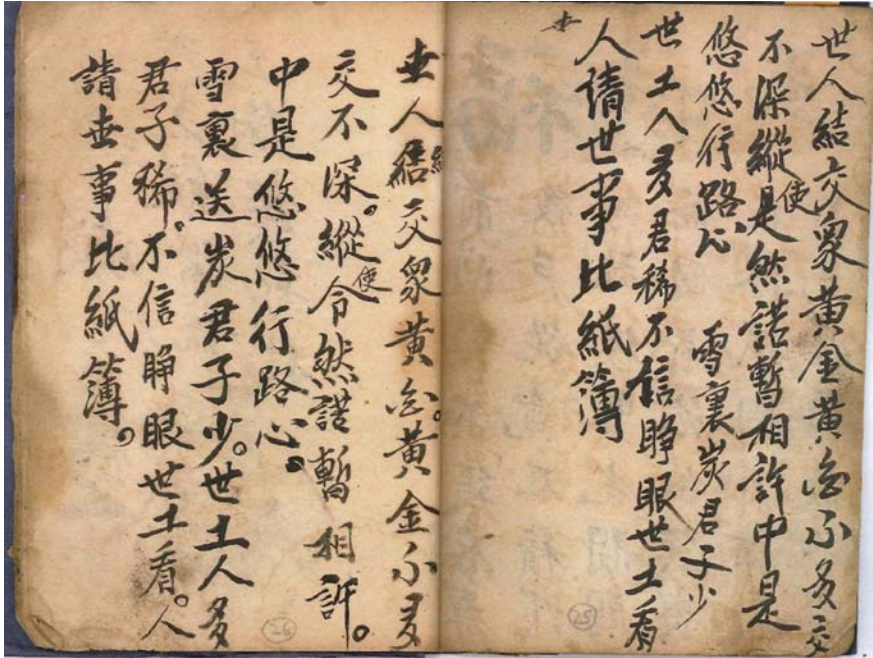 世人結交眾黃金黃金不多交
不深縱使是然諾暫相許中是
悠悠行路心 雪裏炭君子少
世土人多君稀不信睜眼世土看
人情世事比紙簿
世
25
世人結交眾黃金。黃金不多
交不深。縱使令然諾暫相許。
中是悠悠行路心。
雪裏送炭君子少。世土人多
君子稀。不信睜眼世土看。人
請世事比紙簿。
26